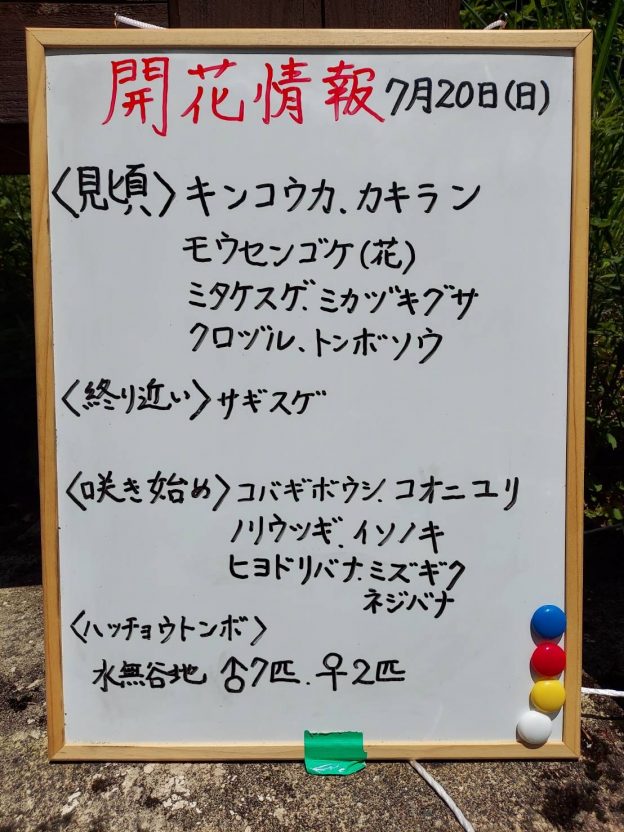 開花情報 7月20日(日)
〈見頃〉キンコウカ、カキラン
モウセンゴケ(花)
ミタケスゲ、ミカヅキグサ
クロヅル、トンボソウ
〈終り近い〉サギスゲ
〈咲き始め〉コバギボウシ、コオニユリ
ノリウツギ、イソノキ
ヒヨドリバナ、ミズギク
ネジバナ
〈ハッチョウトンボ〉
水無谷地 ♂7匹、♀2匹